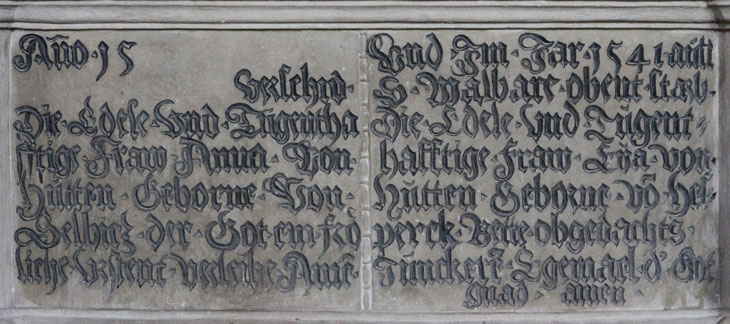 Año · 15
Verschid ·
Die · Edele · Vnd · Tugentha
fftige · Fraw · Anna · Von ·
Hutten · Geborne · Von ·
Selbitz · der · Got · ein · frö
liche · Vrstent · verleihe · Amē ·
Vnd · Im · Jar · 1541 · auff
S · Walbare · obent · starb ·
die · Edele · vnd · Tugent
hafftige · fraw · Eua · von ·
Hutten · Geborne · vō · Hel
perck · Bette · obgedachts ·
Junckers · Egemael · d' · Got
gnad · amen ·